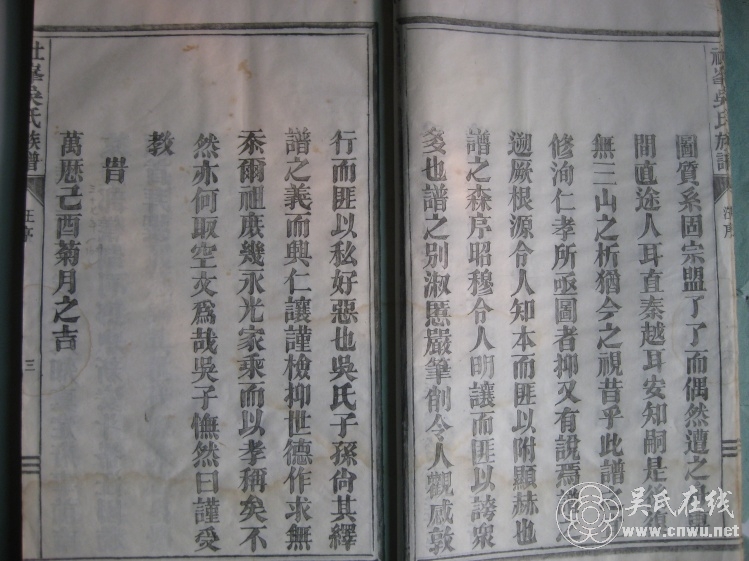 圖質系固宗盟了了而偶然遭之
間直途人耳直秦越耳安知嗣是
無三山之析猶今之視昔乎此譜
修洵仁孝所亟圖者抑又有說焉
遡厥根源令人知本而匪以附顯赫也
譜之森序昭穆令人明讓而匪以誇衆
多也譜之别淑慝嚴筆削令人觀感敦
行而匪以私好惡也吳氏子孫尙其繹
譜之義而興仁讓謹檢抑世德作求無
忝爾祖庶幾永光家乘而以孝稱矣不
然亦何取空文爲哉吳子憮然曰謹受
教
旹
萬厯己酉菊月之吉
吳氏族譜
峯吳氏族譜
三
吴氏在线
www.cnwu.net